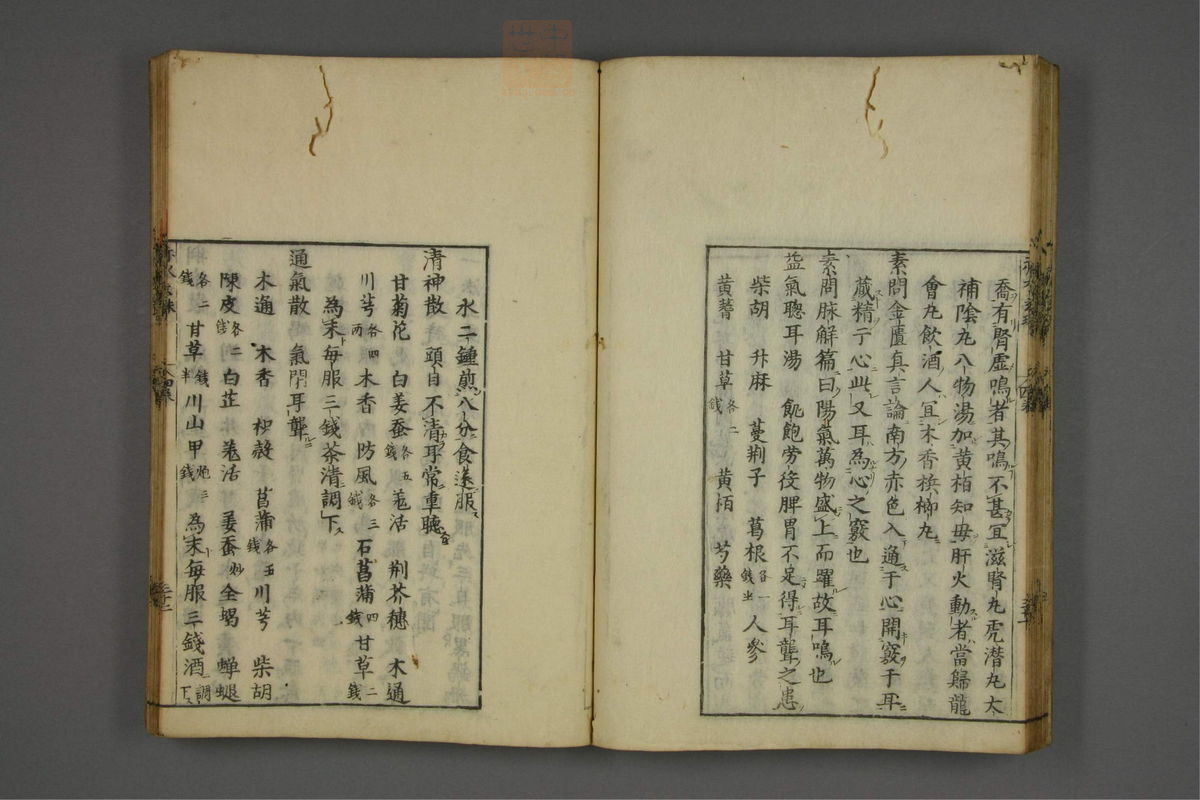 喬有腎虛鳴者其鳴不甚冝滋腎丸虎潜丸大
補陰丸八物湯加黄栢知毋肝火動者當歸龍
會丸飲酒人冝木香檳榔丸
素問金匱真言論南方赤色入通于心開竅于耳
藏精于心此又耳為心之竅也
素問脉解篇曰陽氣萬物盛上而躍故耳鳴也
益氣聰耳湯　飢飽勞役脾胃不足得耳聾之患
柴胡　升麻　蔓荆子　葛根各一錢半　人參
黄蓍　甘草各二錢　黄栢　芍藥
水二鍾煎八分食遠服
清神散　頭目不清耳常重聽
甘菊花　白姜蚕各五錢　羗活　荆芥穗　木通
川芎各四兩　木香　防風各三錢　石菖蒲四錢　甘草二錢
為末每服三錢茶清調下
通氣散　氣閉耳聾
木通　木香　枳殼　菖蒲各五錢　川芎　柴胡
陳皮各二錢　白芷　羗活　姜蚕炒　全蝎　蝉蜕
各二錢　甘草錢半　川山甲炮三錢　為末每服三錢酒調下